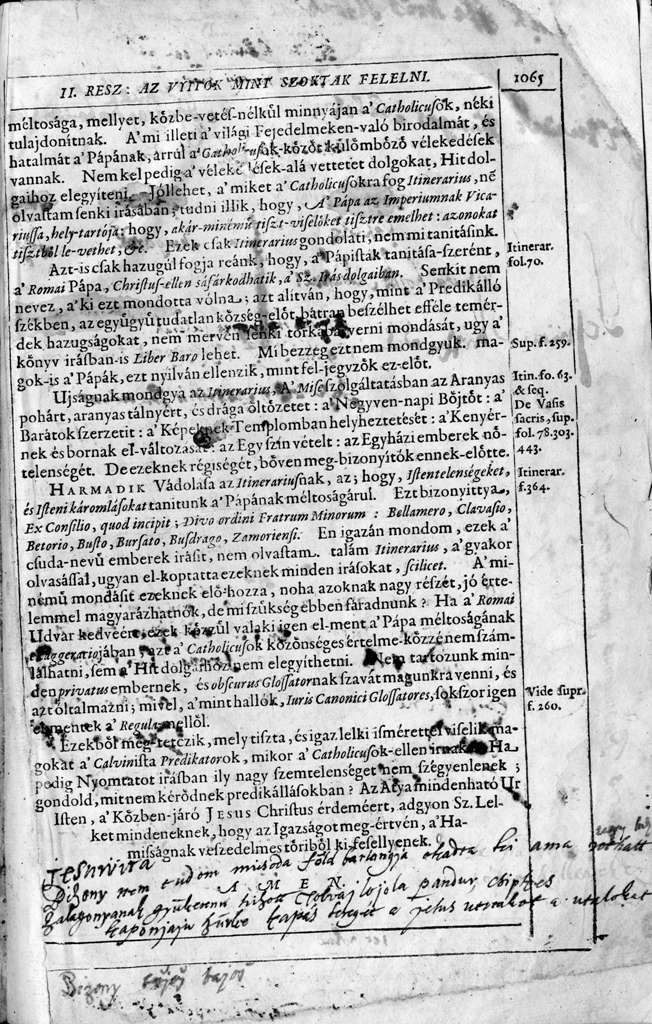 II. RESZ: AZ VYITOK MINT SZOKTAK FELELNI.
1065
méltosága, mellyet, közbe-vetés-nélkül minnyájan a' Catholicusok, néki
tulajdonítnak. A' mi illeti a' világi Fejedelmeken-való birodalmát, és
hatalmát a' Pápának, árrúl a' Catholicusok-közöt külömböző vélekedések
vannak. Nem kel pedig a' véleke dések-alá vettetet dolgokat, Hit dol-
gaihoz elegyíteni. Jóllehet, a' miket a' Catholicusokra fog Itinerarius, nē
olvastam senki irásában; tudni illik, hogy, A' Pápa az Imperiumnak Vica-
riussa, hely-tartója: hogy, akár-minémű tiszt-viselőket tisztre emelhet: azonokat
tisztből le-vethet, &c. Ezek csak Itinerarius gondolati, nem mi tanitásink.
Azt-is csak hazugúl fogja reánk, hogy, a' Pápisták tanitása-szerént,
a' Romai Pápa, Christus-ellen sáfárkodhatik, a' Sz. Irás dolgaiban. Senkit nem
nevez, a' ki ezt mondotta vólna; azt alitván, hogy, mint a' Predikálló
székben, az együgyű tudatlan község-elöt, bátran beszélhet efféle temér-
dek hazugságokat, nem mervén senki torkába verni mondását, ugy a'
könyv irásban-is Liber Baro lehet. Mi bezzeg ezt nem mondgyuk. ma-
gok-is a' Pápák, ezt nyilván ellenzik, mint fel-jegyzők ez-elöt.
Ujságnak mondgya az Itinerarius, A' Mise szolgáltatásban az Aranyas
pohárt, aranyas tálnyért, és drága öltözetet: a' Negyven-napi Bőjtöt: a'
Barátok szerzetit: a' Képeknek Templomban helyheztetését: a' Kenyér-
nek és bornak el-változását: az Egy szín vételt: az Egyházi emberek nő-
telenségét. De ezeknek régiségét, bőven meg-bizonyítók ennek-előtte.
HARMADIK Vádolása az Itinerariusnak, az; hogy, Istentelenségeket,
és Isteni káromlásokat tanitunk a' Pápának méltoságárul. Ezt bizonyittya,
Ex Consilio, quod incipit; Divo ordini Fratrum Minorum: Bellamero, Clavasio,
Betorio, Busto, Bursato, Busdrago, Zamoriensi. En igazán mondom, ezek a'
csuda-nevű emberek irásit, nem olvastam. talám Itinerarius, a' gyakor
olvasással, ugyan el-koptatta ezeknek minden irásokat, scilicet. A' mi-
némű mondásit ezeknek elő-hozza, noha azoknak nagy részét, jó érte-
lemmel magyarázhatnók, de mi szükség ebben fáradnunk? Ha a' Romai
Udvar kedvéért, ezek közzül valaki igen el-ment a' Pápa méltoságának
exaggeratiojában; azt a' Catholicusok közönséges értelme-közzé nem szám-
lálhatni, sem a' Hit dolgaihoz nem elegyíthetni. Nem tartozunk min-
den privatus embernek, és obscurus Glossatornak szavát magunkra venni, és
azt óltalmazni; mivel, a' mint hallók, Iuris Canonici Glossatores, sokszor igen
el-mentek a' Regula mellől.
Ezekből meg-tetczik, mely tiszta, és igaz lelki ismérettel viselik ma-
gokat a' Calvinista Predikatorok, mikor a' Catholicusok-ellen irnak. Ha
pedig Nyomtatot irásban ily nagy szemtelenséget nem szégyenlenek;
gondold, mit nem kérődnek predikállásokban? Az Atya mindenható Ur
Isten, a' Közben-járó JESUS Christus érdeméért, adgyon Sz. Lel-
ket mindeneknek, hogy az Igazságot meg-értvén, a' Ha-
misságnak veszedelmes tőriből ki-fesellyenek.
A M E N.
Itinerar.
fol. 70.
Sup. f. 259.
Itin. fo. 63.
& seq.
De Vasis
sacris, sup.
fol. 78. 303.
443.
Itinerar.
f. 364.
Vide supr.
f. 260.
Jesuwita
Bizony nem tudom misoda föld barlangja okadta ki ama
Bizony